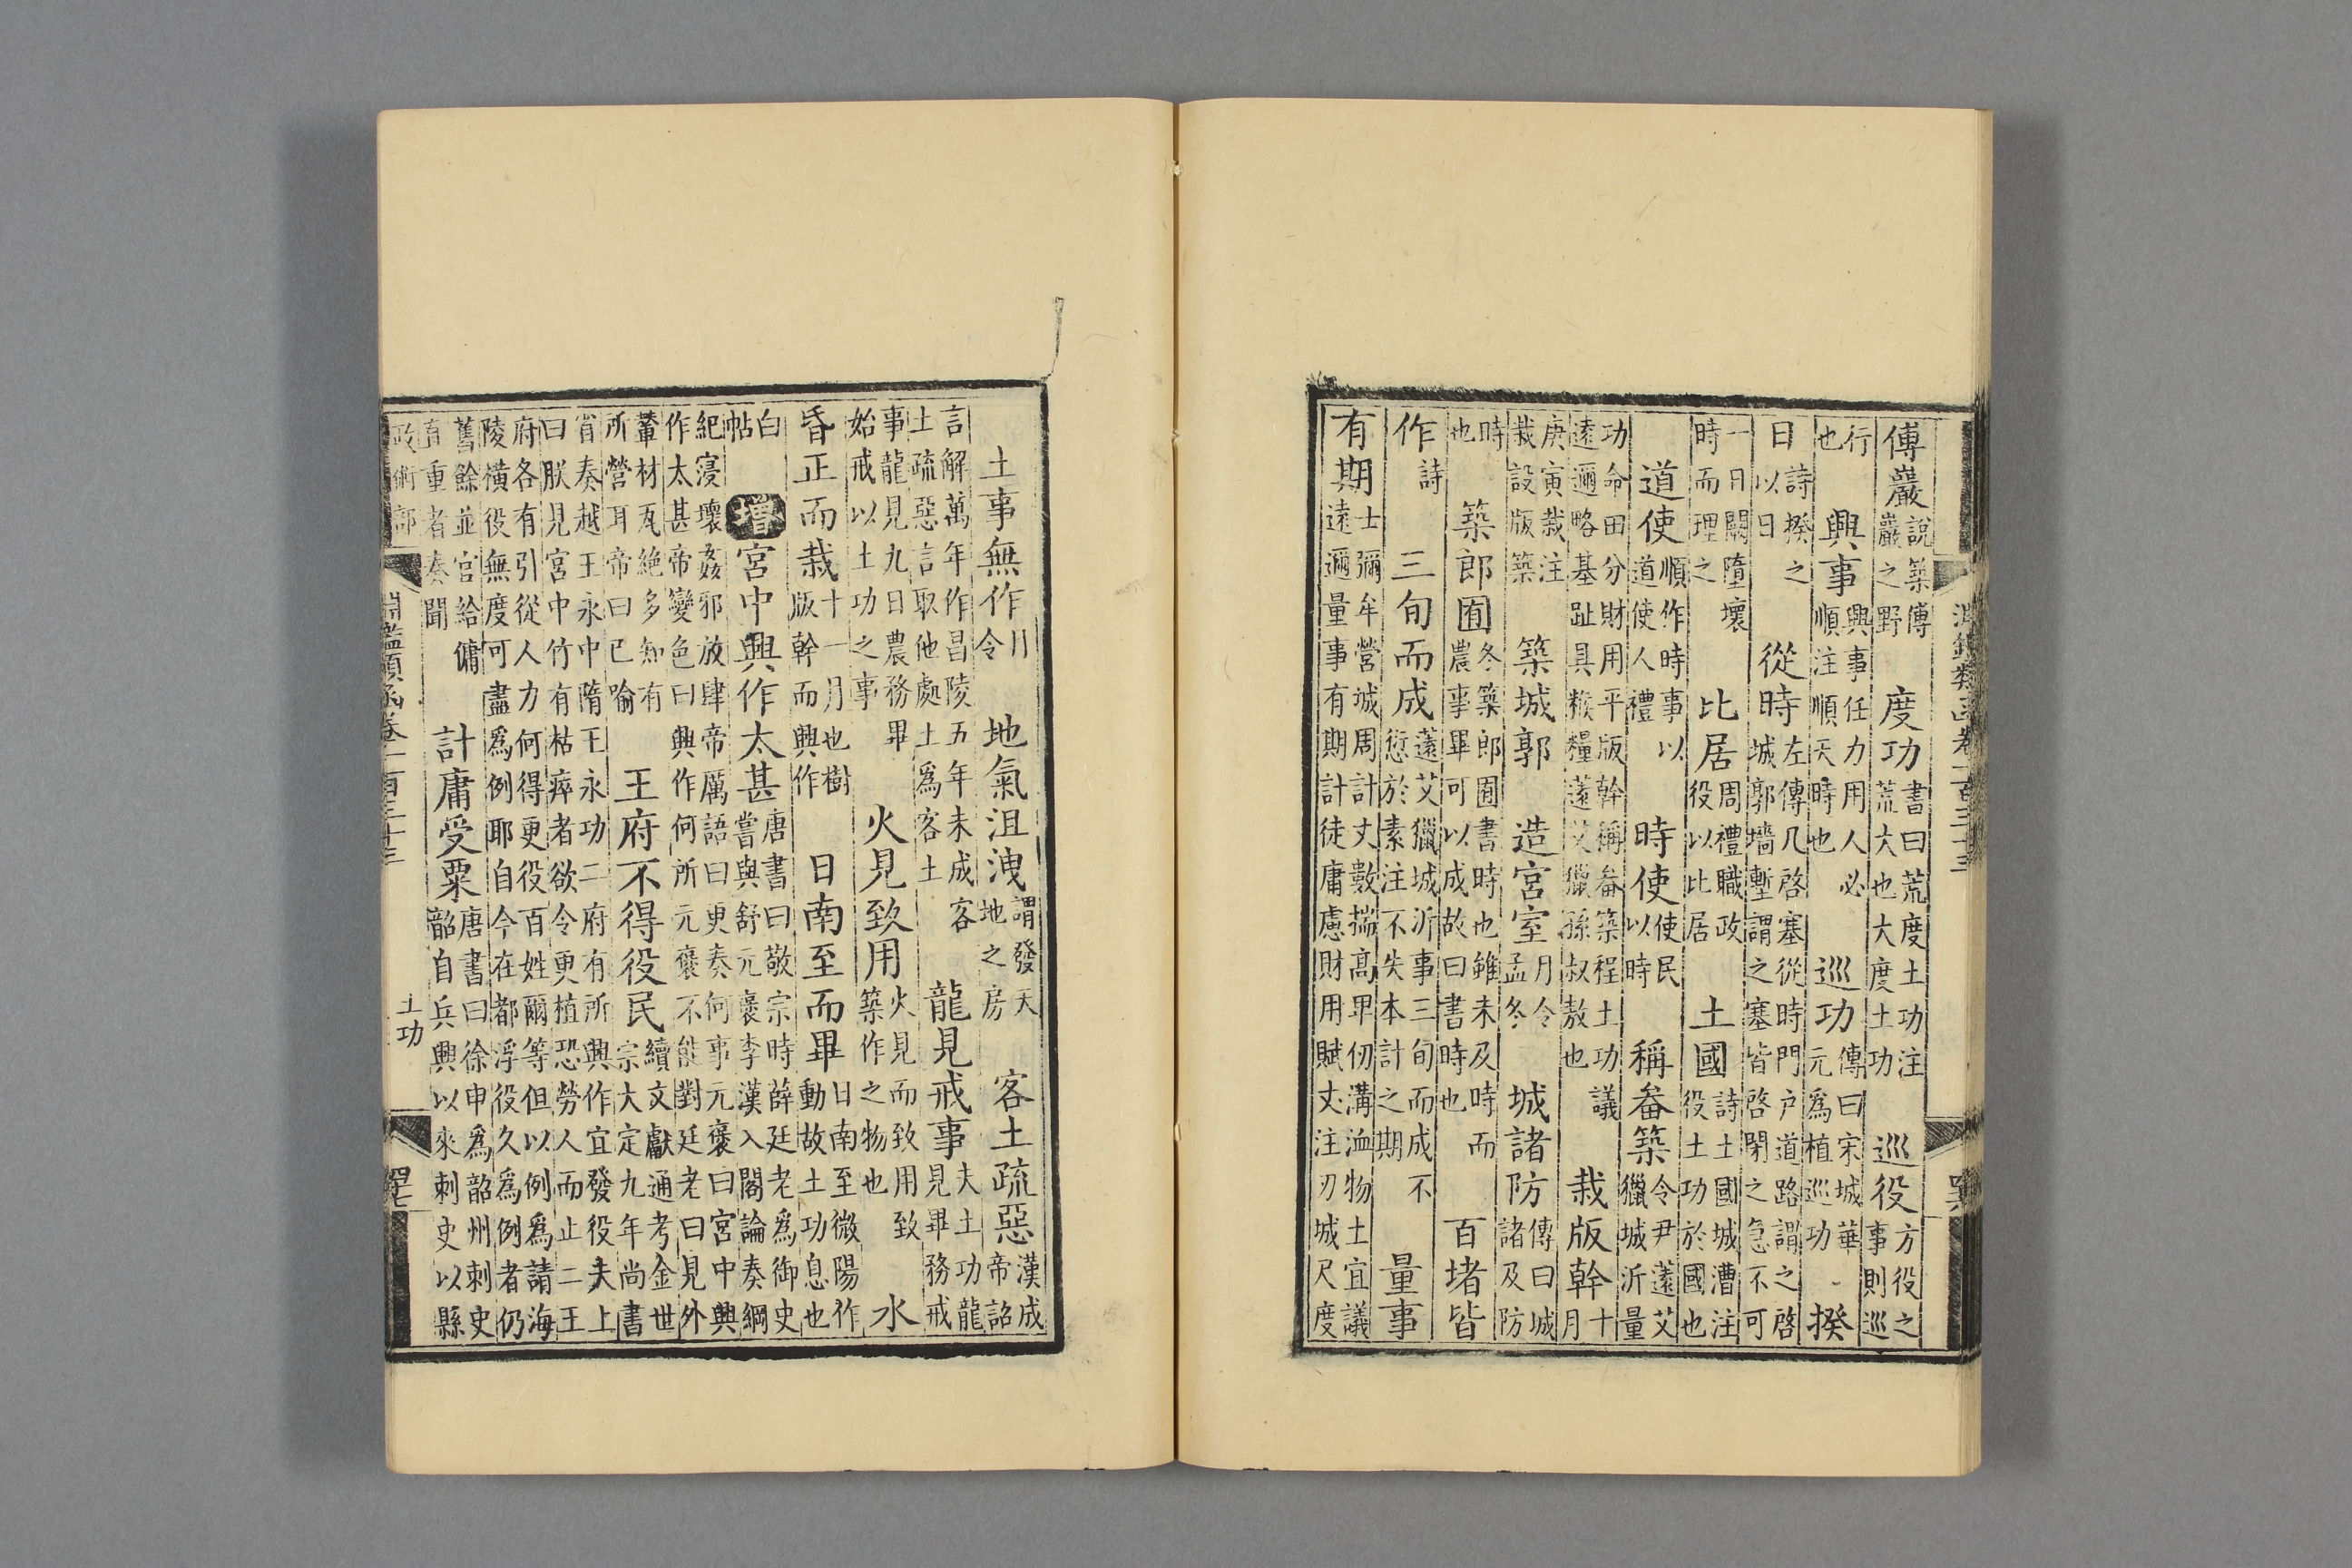 淵鑑類函卷一百三十三
傅巖說築傅巖之野　度功書曰荒度土功注荒大也大度土功　巡役方役之事則巡
行也　興事興事任力用人必順注順天時也　巡功傳曰宋城華元爲植巡功　揆
日詩揆之以日　從時左傳凡啓塞從時門戶道路謂之啓城郭墻塹謂之塞皆啓閉之急不可
一日闕隳壞時而理之　比居周禮職政役以比居　土國詩土國城漕注役土功於國也
道使順作時事以道使人禮　時使使民以時　稱畚築令尹薳艾獵城沂量
功命田分財用平版幹稱畚築程土功議遠邇略基趾具糇糧薳艾獵孫叔敖也　栽版幹十月
庚寅栽注栽設版築　築城郭　造宮室月令孟冬　城諸防傳曰城諸及防
時也　築郎囿冬築郎囿書時也雖未及時而農事畢可以成故曰書時也　百堵皆
作詩　三旬而成薳艾獵城沂事三旬而成不愆於素注不失本計之期　量事
有期士彌牟營城周計丈數揣高卑仞溝洫物土宜議遠邇量事有期計徒庸慮財用賦丈注刃城尺度
土事無作月令　地氣沮洩謂發天地之房　客土疏惡漢成帝詔
言解萬年作昌陵五年未成客土疏惡言取他處土爲客土　龍見戒事夫土功龍見畢務戒
事龍見九日農務畢始戒以土功之事　火見致用火見而致用致築作之物也　水
昏正而栽十一月也樹版幹而興作　日南至而畢日南至微陽作動故土功息也
白帖　增宮中興作太甚唐書曰敬宗時薛廷老爲御史嘗與舒元褒李漢入閣論奏綱
紀寖壞姦邪放肆帝厲語曰更奏何事元褒曰宮中興作太甚帝變色曰興作何所元褒不能對廷老曰見外
輦材瓦絶多知有所營耳帝曰已喻　王府不得役民續文獻通考金世宗大定九年尚書
省奏越王永中隋王永功二府有所興作宜發役夫上曰朕見宮中竹有枯瘁者欲令更植恐勞人而止二王
府各有引從人力何得更役百姓爾等但以例爲請海陵橫役無度可盡爲例耶自今在都浮役久爲例者仍
舊餘並官給傭直重者奏聞　計庸受粟唐書曰徐申爲韶州刺史韶自兵興以來刺史以縣
政術部　淵鑑類函卷一百三十三　土功